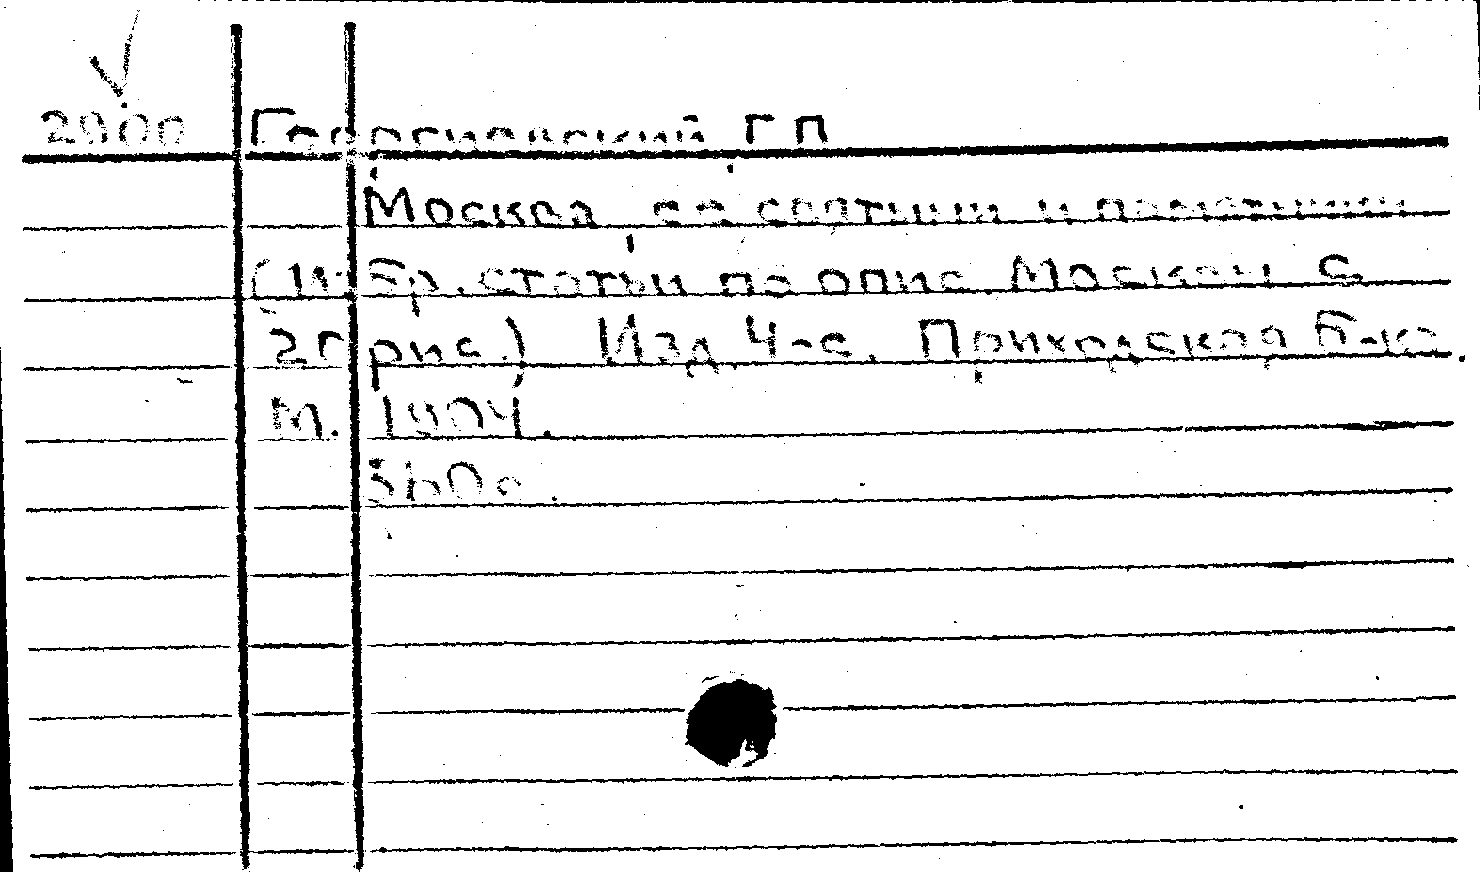 2900 Георгиевский Г П
Москва, ея святыни и памятники
(Избр. статьи по опис. Москвы с
рис.) Изд 4-е. Приходская б-ка.
М. 1904.